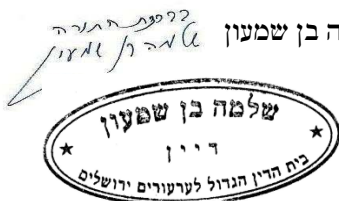 ה בן שמעון
בברכת התורה
שלמה בן שמעון
שלמה בן שמעון
דיין
בית הדין הגדול לערעורים ירושלים